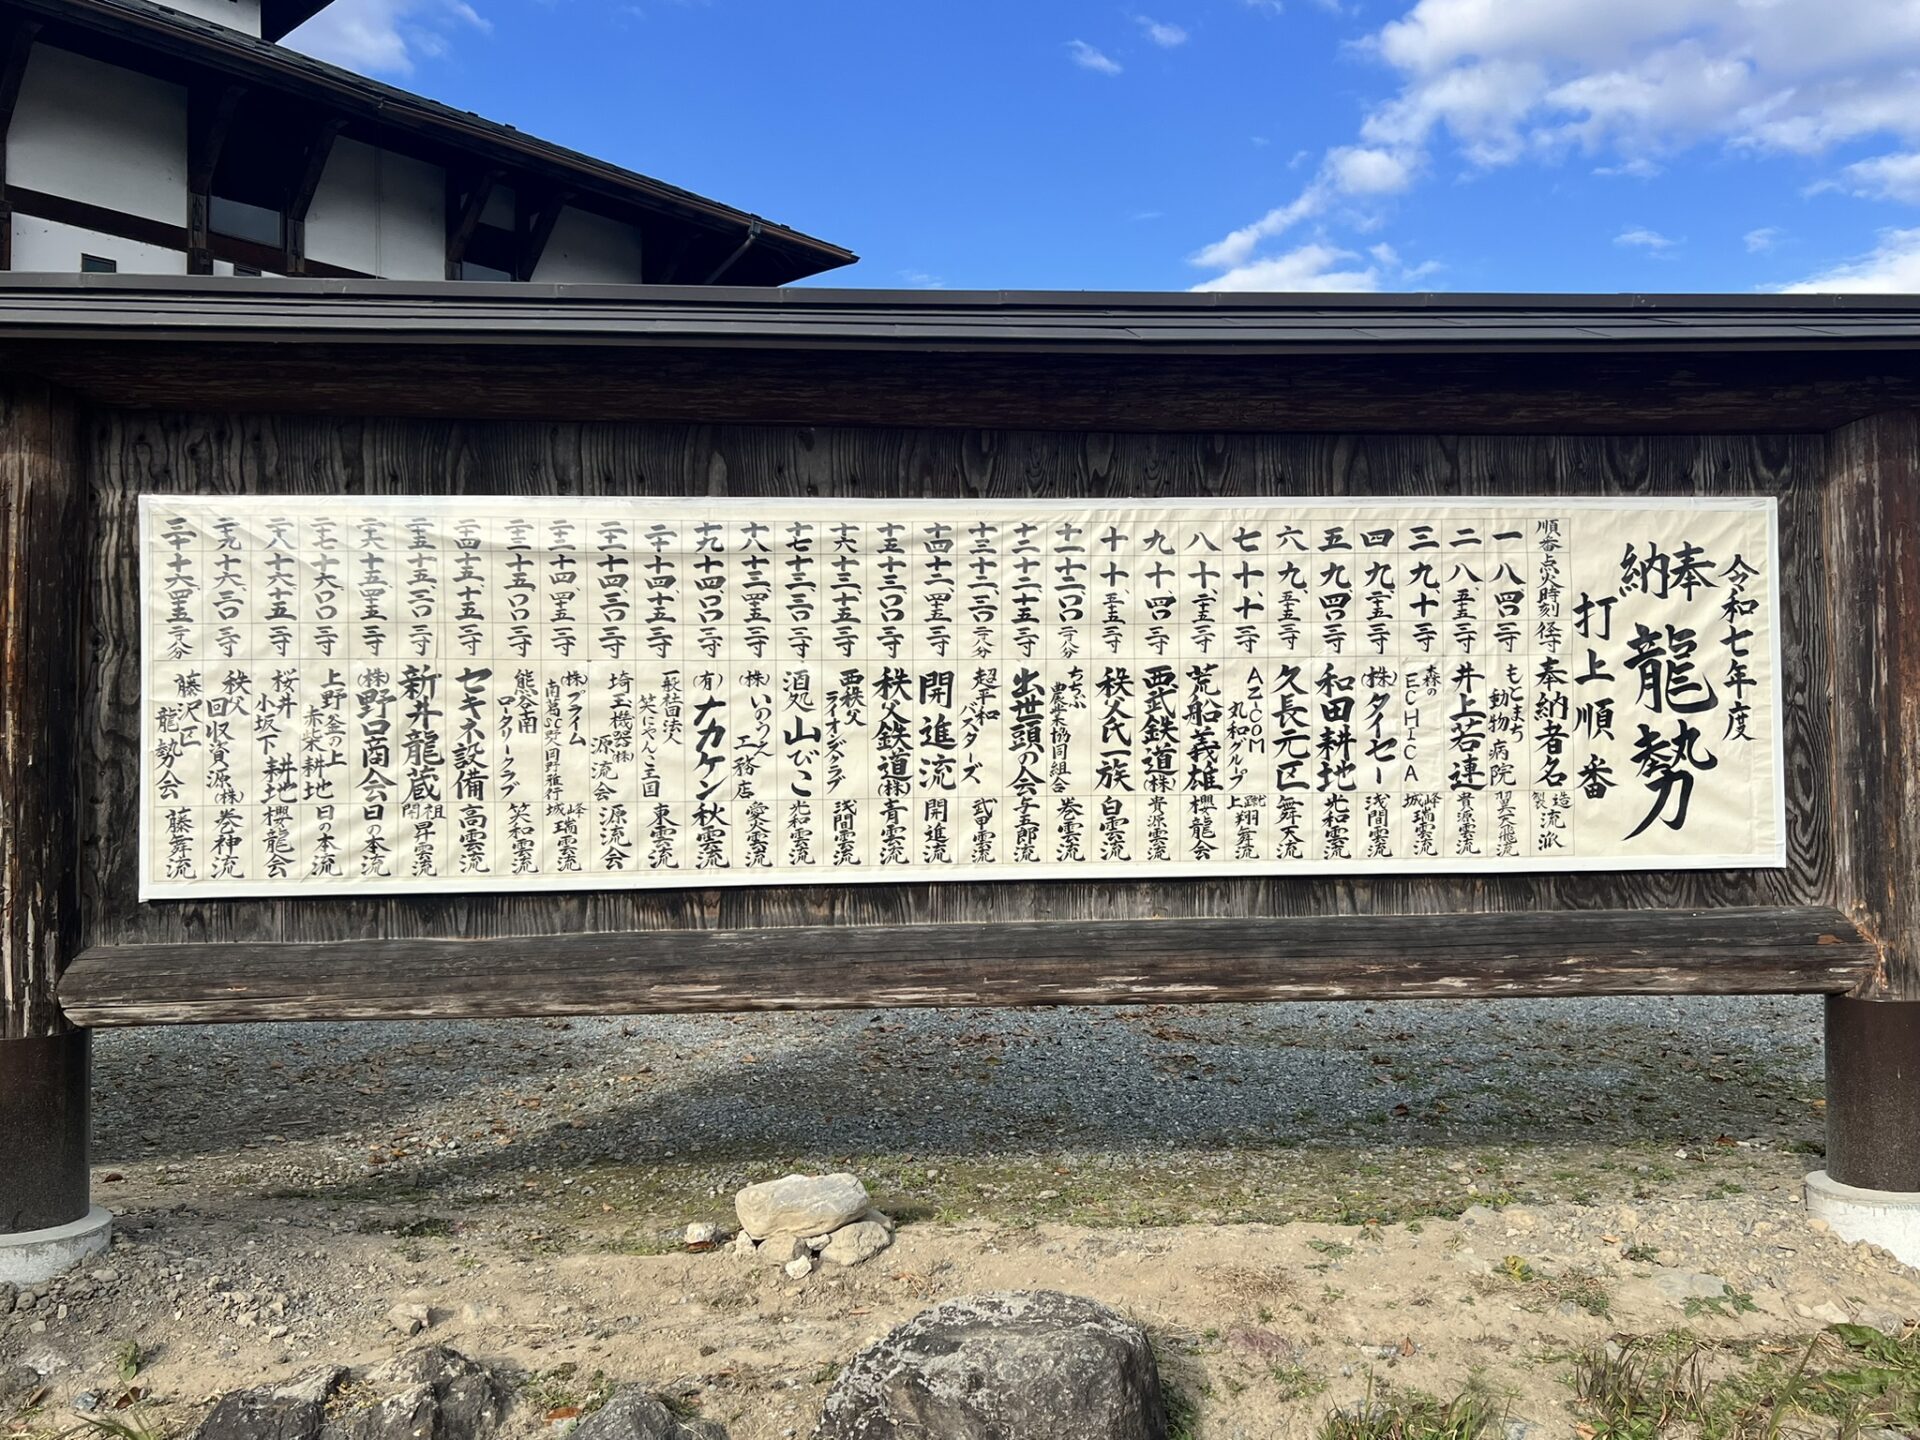 令和七年度
奉納 龍勢
打上順番
順番 点火時刻 径寸 奉納者名 製造流派
一 八、四〇 三寸 もとまち動物病院 翼天飛流
二 八、五五 三寸 井上若連 貴源雲流
三 九、十 三寸 森のECHICA 城峰瑞雲流
四 九、二五 三寸 (株)タイセー 浅間雲流
五 九、四〇 三寸 和田耕地 光和雲流
六 九、五五 三寸 久長元区 舞天流
七 十、十 三寸 AZ-COM丸和グループ 上蹴翔舞流
八 十、二五 三寸 荒船義雄 櫻龍会
九 十、四〇 三寸 西武鉄道(株) 貴源雲流
十 十、五五 三寸 秩父氏一族 白雲流
十一 十二、〇〇 二寸八分 ちちぶ農業協同組合 巻雲流
十二 十二、十五 二寸八分 出世頭の会 与五郎流
十三 十二、三〇 二寸八分 超平和バスターズ 武甲雲流
十四 十二、四五 三寸 開進流 開進流
十五 十三、〇〇 三寸 秩父鉄道(株) 青雲流
十六 十三、十五 三寸 西秩父ライオンズクラブ 浅間雲流
十七 十三、三〇 三寸 酒処山びこ 光和雲流
十八 十三、四五 三寸 (株)いのうえ工務店 愛火雲流
十九 十四、〇〇 三寸 (有)ナカケン 秋雲流
二十 十四、十五 三寸 一般社団法人笑にゃんこ王国 東雲流
二十一 十四、三〇 三寸 埼玉機器(株)源流会 源流会
二十二 十四、四五 三寸 (株)プライム南葛SC野人岡野雅行 城峰瑞雲流
二十三 十五、〇〇 三寸 熊谷南ロータリークラブ 笑和雲流
二十四 十五、十五 三寸 セキネ設備 高雲流
二十五 十五、三〇 三寸 新井龍蔵 開祖昇雲流
二十六 十五、四五 三寸 (株)野口商会 日の本流
二十七 十六、〇〇 三寸 上野釜の上赤柴耕地 日の本流
二十八 十六、十五 三寸 桜井小坂下耕地 櫻龍会
二十九 十六、三〇 三寸 秩父回収資源(株) 巻神流
三十 十六、四五 二寸八分 藤沢区龍勢会 藤舞流